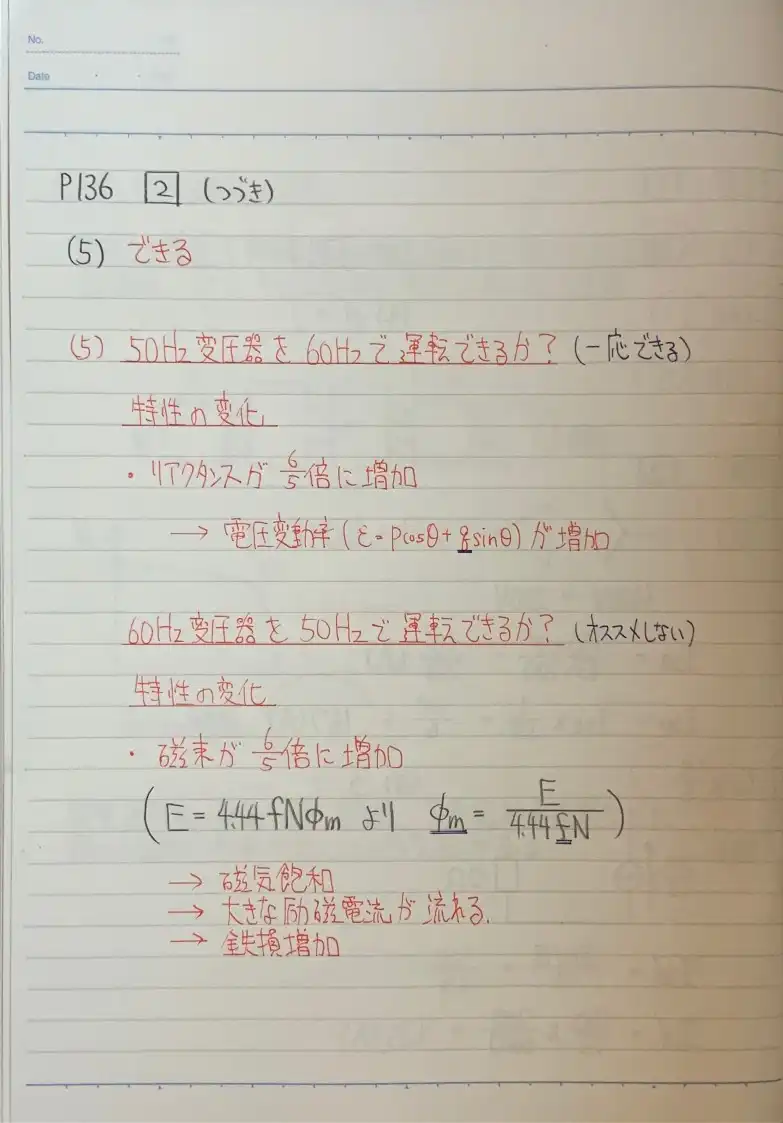 No.
Date
P136 2 (つづき)
(5) できる
(5) 50Hz変圧器を60Hzで運転できるか? (一応できる)
特性の変化
・リアクタンスが 6/5倍に増加
→ 電圧変動率 (ε=pcosθ+qsinθ)が増加
60Hz変圧器を50Hzで運転できるか? (オススメしない)
特性の変化
・磁束が 6/5倍に増加
(E=4.44fNΦm より Φm=E/4.44fN)
→ 磁気飽和
→ 大きな励磁電流が流れる.
→ 鉄損増加